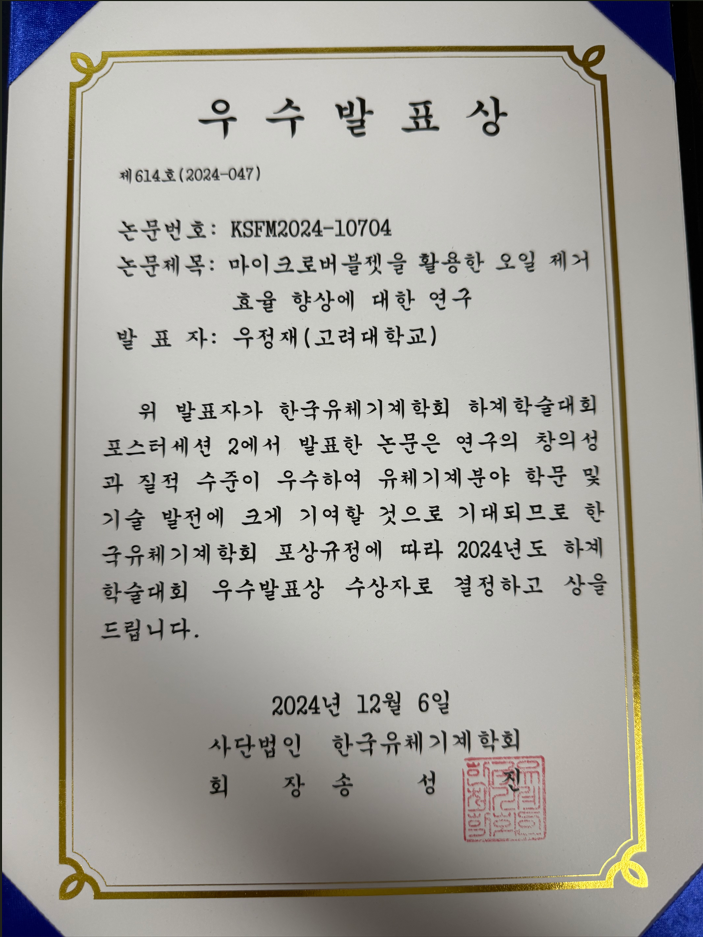 우 수 발 표 상
제614호(2024-047)
논문번호: KSFM2024-10704
논문제목: 마이크로버블젯을 활용한 오일 제거
효율 향상에 대한 연구
발 표 자: 우정재(고려대학교)
위 발표자가 한국유체기계학회 하계학술대회
포스터세션 2에서 발표한 논문은 연구의 창의성
과 질적 수준이 우수하여 유체기계분야 학문 및
기술 발전에 크게 기여할 것으로 기대되므로 한
국유체기계학회 포상규정에 따라 2024년도 하계
학술대회 우수발표상 수상자로 결정하고 상을
드립니다.
2024년 12월 6일
사단법인 한국유체기계학회
회 장 송 성 진